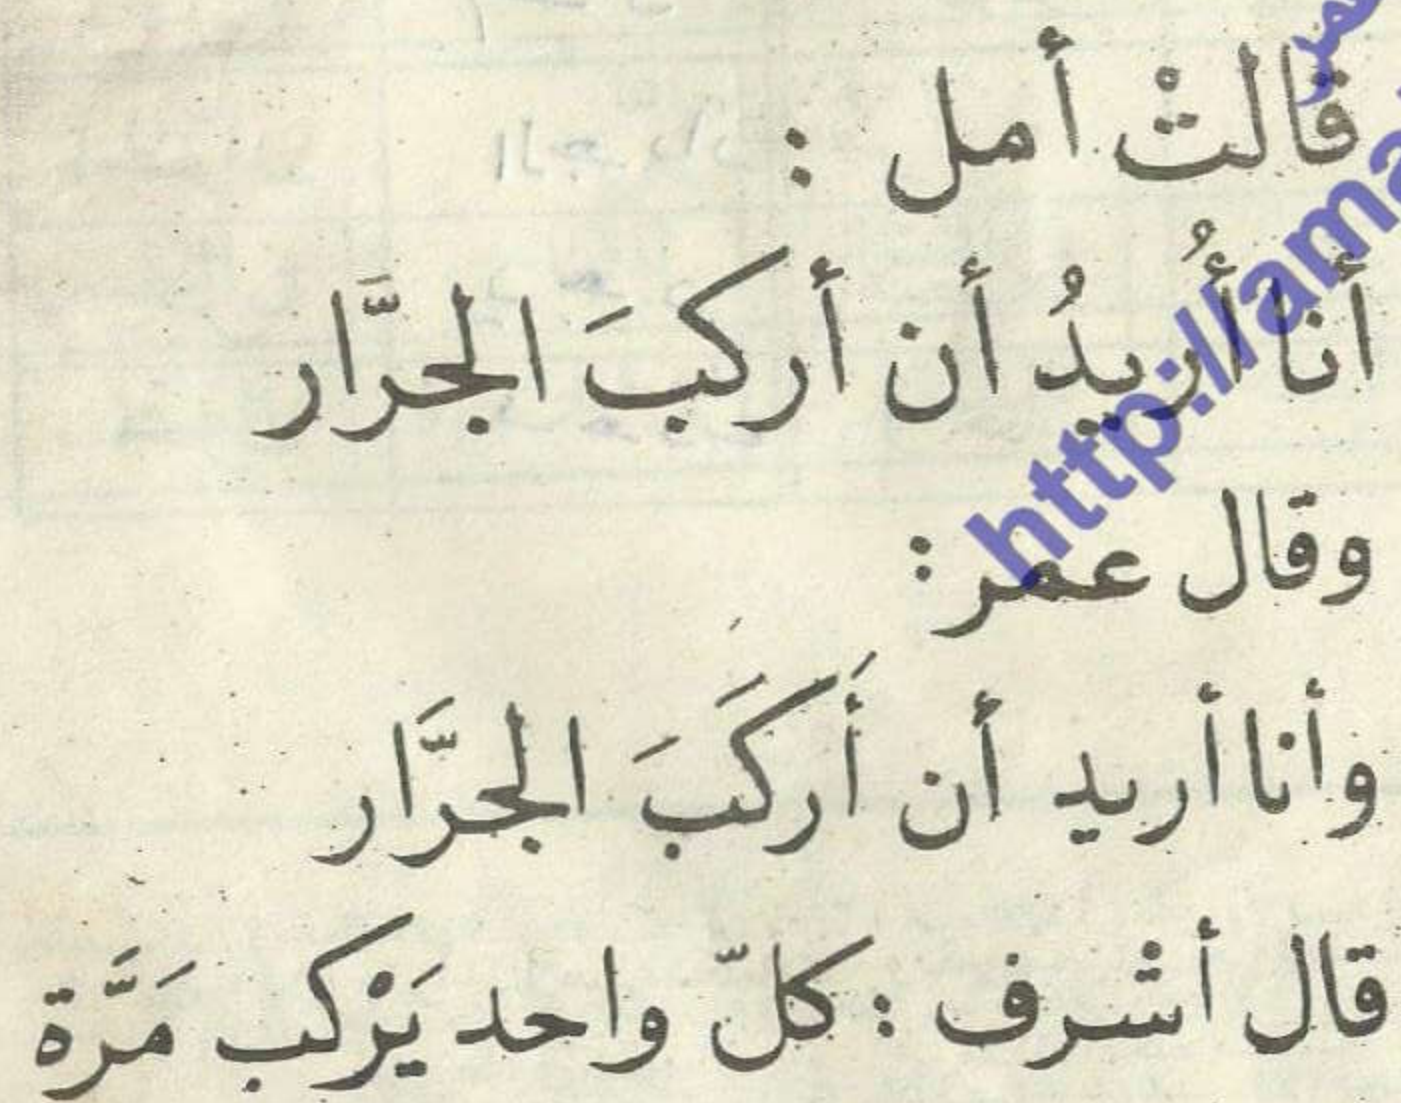 قالتْ أمل :
أنا أُريدُ أن أركبَ الجرَّار
وقال عمر :
وأنا أريد أن أَركَبَ الجرَّار
قال أشْرف : كلّ واحد يَرْكب مَرَّة
http://ama